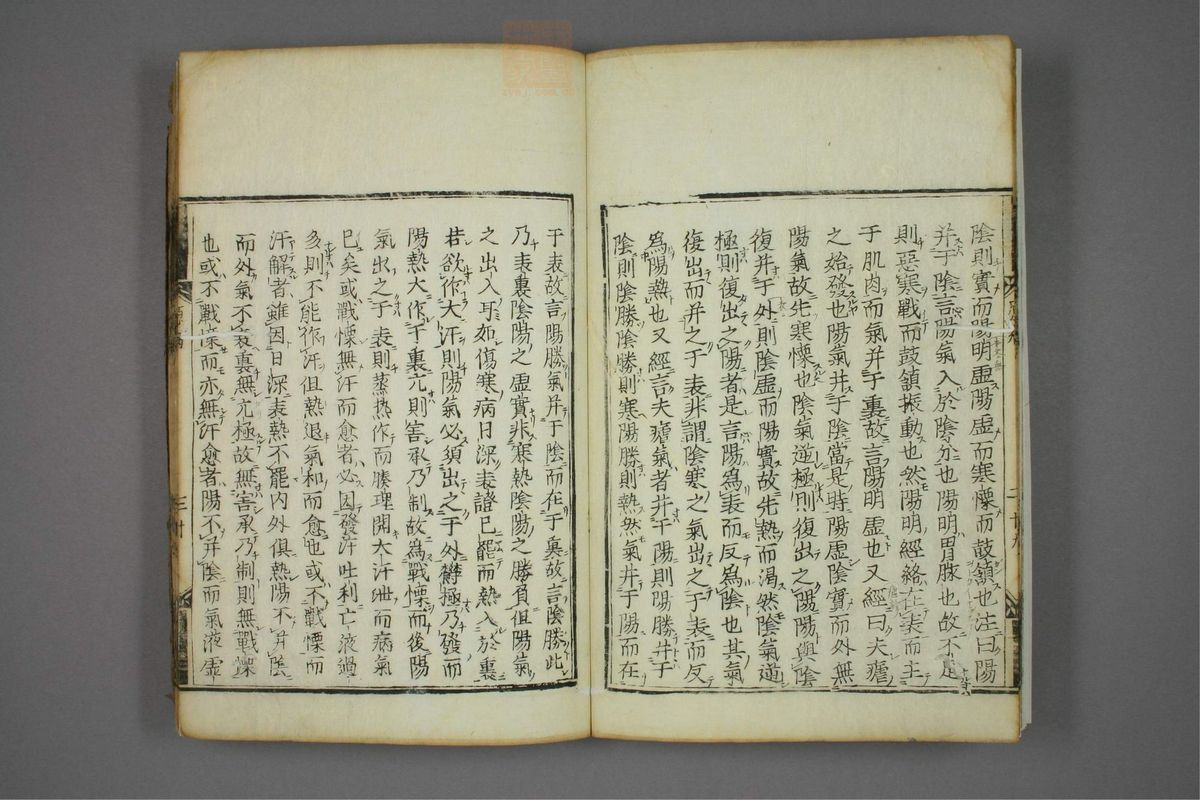 陰則實而陽明虛陽虛而寒慄而鼓頷也注曰陽
并于陰言陽氣入於陰分也陽明胃脉也故不足
則惡寒戰而鼓頷振動也然陽明經絡在表而主
于肌肉而氣并于裏故言陽明虛也又經曰夫瘧
之始發也陽氣并于陰當是時陽虛陰實而外無
陽氣故先寒慄也陰氣逆極則復出之陽陽與陰
復并于外則陰虛而陽實故先熱而渴然陰氣逆
極則復出之陽者是言陽為表而反為陰也其氣
復出而并之于表非謂陰寒之氣出之于表而反
為陽熱也又經言夫瘧氣者并于陽則陽勝并于
陰則陰勝陰勝則寒陽勝則熱然氣并于陽而在
于表故言陽勝氣并于陰而在于裏故言陰勝此
乃表裏陰陽之虛實非寒熱陰陽之勝負但陽氣
之出入耳如傷寒病日深表證已罷而熱入於裏
若欲作大汗則陽氣必須出之于外鬱極乃發而
陽熱大作于裏亢則害承乃制故為戰慄而後陽
氣出之于表則蒸熱作而腠理開大汗泄而病氣
已矣或戰慄無汗而愈者必因發汗吐利亡液過
多則不能作汗但熱退氣和而愈也或不戰慄而
汗解者雖因日深表熱不罷內外俱熱陽不并陰
而外氣不衰裏無亢極故無害承乃制則無戰慄
也或不戰慄而亦無汗愈者陽不并陰而氣液虛